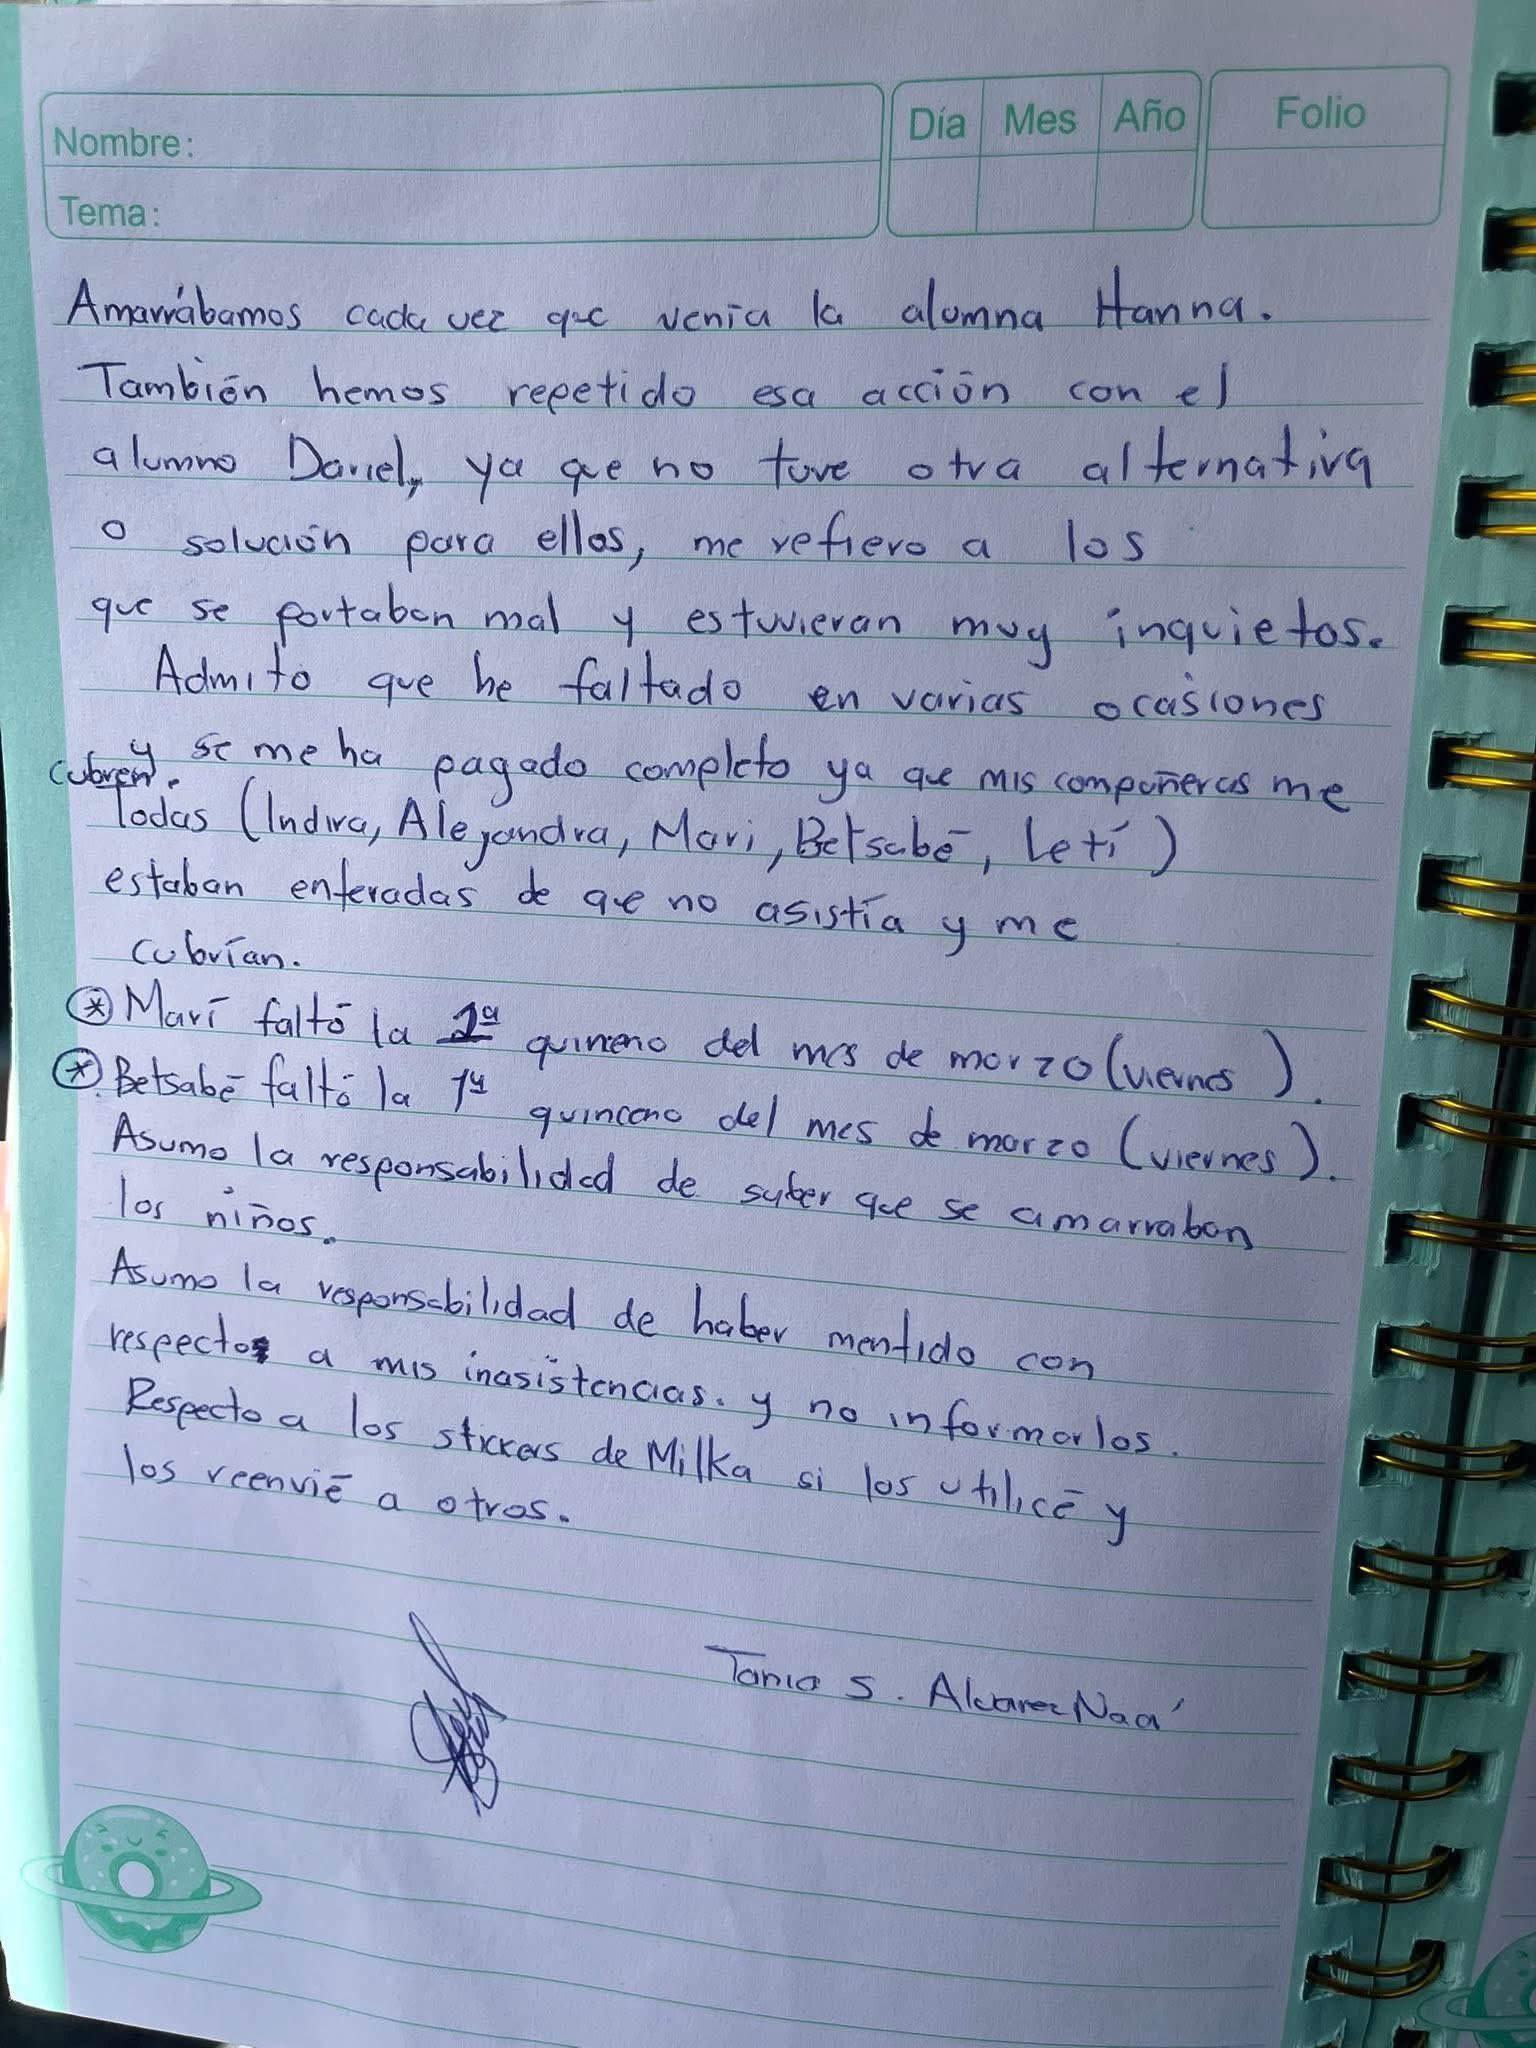 Nombre:
Día Mes Año
Folio
Tema:
Amarrábamos cada vez que venía la alumna Hanna.
También hemos repetido esa acción con el
alumno Dariel, ya que no tuve otra alternativa
o solución para ellos, me refiero a los
que se portaban mal y estuvieran muy inquietos.
Admito que he faltado en varias ocasiones
y se me ha pagado completo ya que mis compañeras me
cubren.
Todas (Indira, Alejandra, Mari, Betsabé, Letí)
estaban enteradas de que no asistía y me
cubrían.
* Marí faltó la 2ª quincena del mes de marzo (viernes).
* Betsabé faltó la 1ª quincena del mes de marzo (viernes).
Asumo la responsabilidad de saber que se amarraban
los niños.
Asumo la responsabilidad de haber mentido con
respecto a mis inasistencias. y no informarlos.
Respecto a los stickers de Milka si los utilicé y
los reenvié a otros.
Tania S. Alvarez